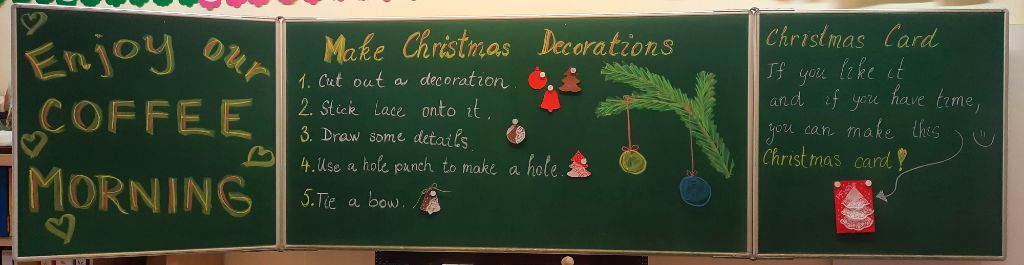 Enjoy our
COFFEE
MORNING
Make Christmas Decorations
1. Cut out a decoration.
2. Stick lace onto it.
3. Draw some details.
4. Use a hole punch to make a hole.
5. Tie a bow.
Christmas Card
If you like it
and if you have time,
you can make this
Christmas card!